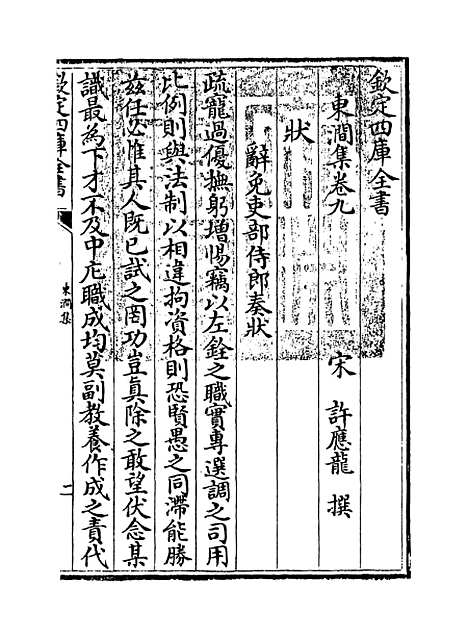 欽定四庫全書
東澗集卷九
宋 許應龍 撰
狀
辭免吏部侍郎奏狀
疏寵過優撫躬增惕竊以左銓之職實專選調之司用
比例則與法制以相違拘資格則恐賢愚之同滯能勝
兹任必惟其人既已試之罔功豈真除之敢望伏念某
識最為下才不及中庀職成均莫副教養作成之責代
欽定四庫全書
東澗集